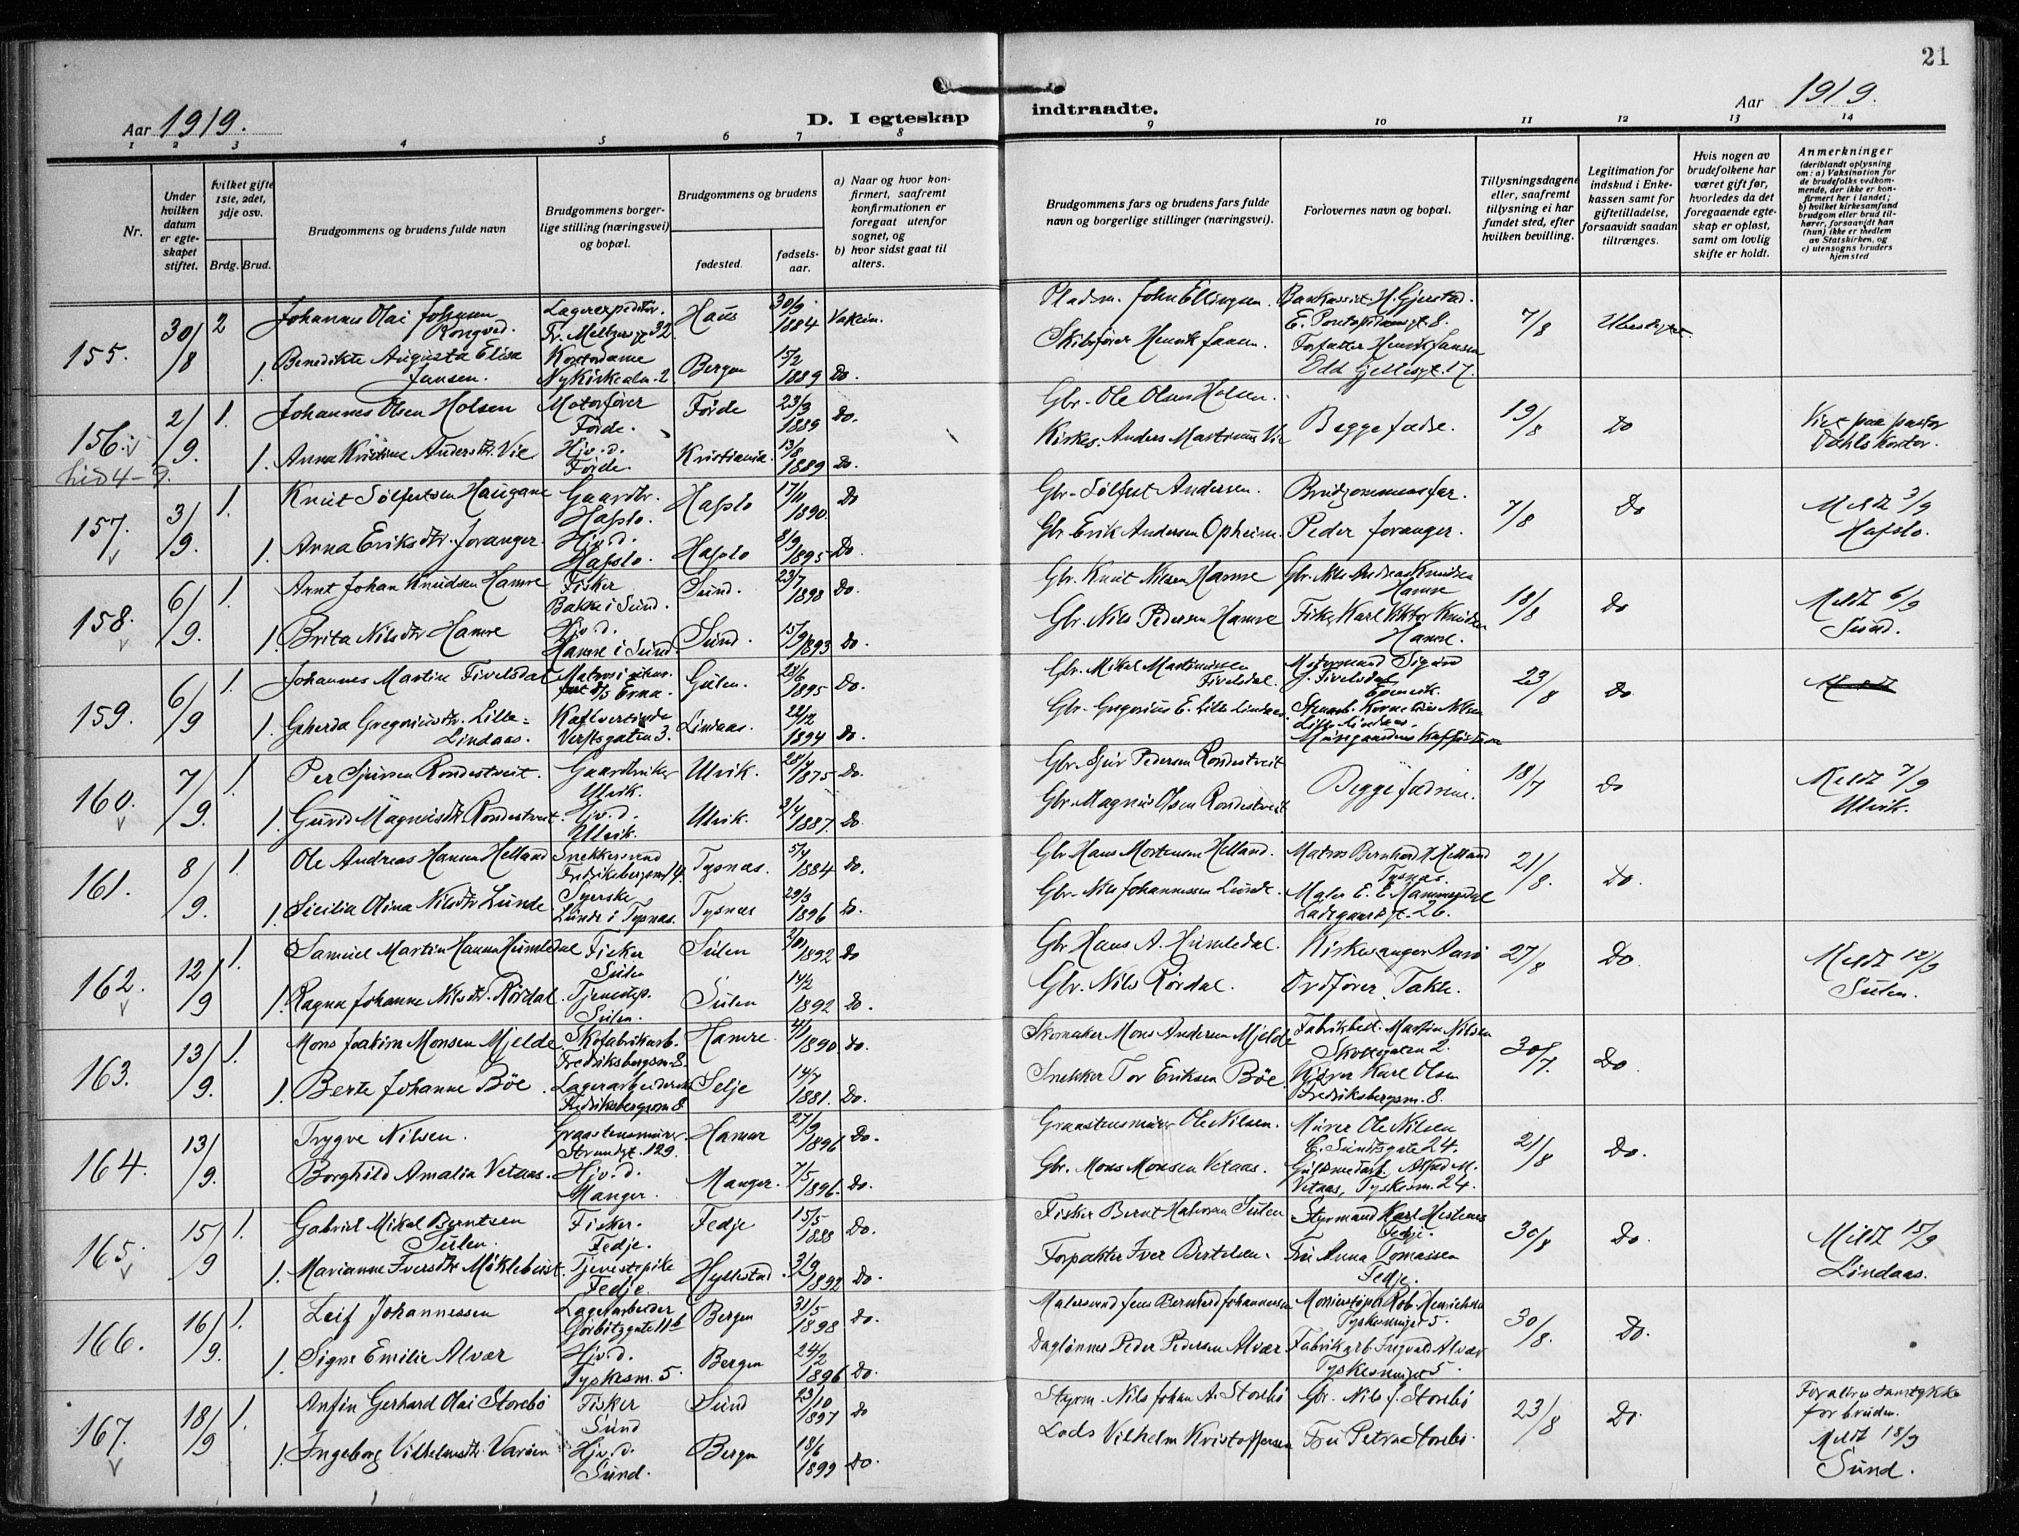 21
Aar 1919.
D. I egteskap indtraadte.
Aar 1919.
1 2 3 4 5 6 7 8 9 10 11 12 13 14
Nr.
Under hvilken datum er egteskapet stiftet.
hvilket gifte 1ste, 2det, 3dje osv.
Brdg. Brud.
Brudgommens og brudens fulde navn
Brudgommens borgerlige stilling (næringsvei) og bopæl.
Brudgommens og brudens
fødested.
fødselsaar.
a) Naar og hvor konfirmert, saafremt konfirmationen er foregaat utenfor sognet, og
b) hvor sidst gaat til alters.
Brudgommens fars og brudens fars fulde navn og borgerlige stillinger (næringsvei).
Forlovernes navn og bopæl.
Tillysningsdagene eller, saafremt tillysning ei har fundet sted, efter hvilken bevilling.
Legitimation for indskud i Enkekassen samt for giftetilladelse, forsaavidt saadan tiltrænges.
Hvis nogen av brudefolkene har været gift før, hvorledes da det foregaaende egteskap er opløst, samt om lovlig skifte er holdt.
Anmerkninger
(deriblandt oplysning om: a) Vaksination for de brudefolks vedkommende, der ikke er konfirmert her i landet; b) hvilket kirkesamfund brudgom eller brud tilhører, forsaavidt han (hun) ikke er medlem av Statskirken, og c) utensogns bruders hjemsted
155. 30/8 2 Johannes Olai Johnsen Rongved. Lagerexpeditør Fr. Meltzersgt 32 Haus 30/9 1884 Pladsm. John Ellingsen. E. Pontoppidansgt. 8. 7/8
1. Benedikte Augusta Elisa Jansen. Kontordame Nykirkealm. 2 Bergen 15/2 1889 Do. Skibsfører Henrik Jansen. Forfatter Henrik Jansen Odd Gjellesgt. 17.
156. 2/9 1. Johannes Olsen Holsen Motorfører Førde. Førde 23/3 1889 Do. Gbr. Ole Olsen Holsen. Begge fædre. 19/8 Do
1. Anna Kristine Andersdtr. Vie Hjv.d. Førde. Kristiania 13/8 1889 Do Kirkes. Anders Martinus Vie
157. 3/9. 1. Knut Sølfestsen Haugane Gaardbr. Hafslo. Hafslo 17/11 1890. Do Gbr. Sølfest Andersen. Brudgommens far. 7/8 Do Meldt 3/9 Hafslo.
1. Anna Eriksdtr. Joranger. Hjv.d. Hafslo. Hafslo 8/9 1895 Do. Gbr. Erik Andersen Opheim. Peder Joranger.
158. 6/9. 1. Arnt Johan Knudsen Hamre Fisker Bakke i Sund. Sund. 23/7 1898 Do. Gbr. Knut Nilsen Hamre Gbr. Nils Andreas Knudsen Hamre 18/8 Do Meldt 6/9 Sund.
1. Brita Nilsdtr Hamre Hjv.d. Hamre i Sund. Sund. 15/9 1893 Do. Gbr. Nils Pedersen Hamre Fisker Karl Viktor Knudsen Hamre.
159. 6/9 1. Johannes Martin Fivelsdal Gulen. 28/6 1895 Do. Gbr. Mikal Martinussen Fivelsdal. Motormand Sigurd J. Fivelsdal 23/8 Do.
1. Geherda Gregoriusdtr. Lille-Lindaas. Kaffvertinde Verftsgaten 3. Lindaas 22/12 1894 Do. Gbr. Gregorius E. Lille Lindaas Stuearb. Kornelius Nilsen Lille Lindaas.
160. 7/9. 1. Per Sjursen Rondestveit. Gaardbruker Ulvik. Ulvik. 28/4 1875 Do. Gbr. Sjur Pedersen Rondestveit Begge fædrene. 18/7 Do Meldt 7/9 Ulvik.
1. Gurid Magnusdtr Rondestveit Hjv.d. Ulvik. Ulvik. 3/4 1887. Do. Gbr. Magnus Olsen Rondestveit
161. 8/9. 1. Ole Andreas Hansen Helland Snekkersvend Fredriksbergsm 14. Tysnas. 5/4 1884 Do. Gbr Hans Mortensen Helland. Matros Bernhard H Helland Tysnas. 21/8. Do.
1. Sicilia Olina Nilsdtr Lunde Syerske Lunde i Tysnas. Tysnas 29/3 1896 Do. Gbr. Nils Johannessen Lunde. Maler E. E. Hammersdal Ladegaardsgt. 26.
162. 12/9 1. Samuel Martin Hansen Humledal Fisker Sulen Sulen 1892 Do Gbr Hans A. Humledal. Kirkesanger Aarø 27/8 Do. Meldt 12/9 Sulen.
1. Ragna Johanne Nilsdtr. Rørdal Tjenestep. Sulen. Sulen 14/2 1892 Do. Gbr. Nils Rørdal. Ordfører Takle.
163. 13/9. 1. Mons Joakim Monsen Mjelde. Skofabrikarb. Fredriksbergsm 8. Hamre. 1890 Do. Skomaker Mons Andersen Mjelde Fabrikbest. Martin Nilsen Skottegaten 2. 30/7. Do.
1. Berte Johanne Bøe. Lagerarbeiderske Fredriksbergsm 8 Selje 14/7 1881. Do. Snekker Tor Eriksen Bøe. Karl Olsen Fredriksbergsm. 8.
164. 13/9. Trygve Nilsen. Graastensmurer Strandgt. 129. Hamar 27/9 1896 Do. Graastensmurer Ole Nilsen. Murer Ole Nilsen E. Sundtsgate 24. 21/8 Do.
Borghild Amalia Vetaas. Hjv.d. Manger. Manger. 7/5 1896. Do. Gbr. Mons Monsen Vetaas. Guldsmedarb. Alfred M. Vetaas, Tyskesm. 24.
165. 15/9 1. Gabriel Mikal Berntsen Sulen. Fisker. Fedje. Fedje 15/5 1888 Do. Fisker Bernt Halvorsen Sulen Styrmand Karl Hestenes Fedje. 30/8 Do. Meldt 15/9 Lindaas.
1. Marianne Iversdtr Møklebust Tjenestepike Fedje. Hyllestad. 3/9 1892 Do. Forpakter Iver Bertelsen. Fru Anna Tomassen Fedje.
166. 16/9. 1. Leif Johannessen Lagerarbeider Gørbitzgate 11b Bergen 31/5 1898 Do. Malersvend Jens Bernhard Johannessen Rob. Henriksen Tyskesmuget 5. 30/8. Do.
1. Signe Emilie Alvær Hjv.d. Tyskesm. 5. Bergen 24/2 1896 Do. Daglønner Peder Pedersen Alvær Fabrikarb. Ingvald Alvær Tyskesmuget 5.
167. 18/9 1. Anfin Gerhard Olai Storebø Fisker Sund Sund 23/10 1897 Do Styrm. Nils Johan A. Storebø Gbr. Nils J. Storebø 23/8 Do. Forældres samtykke for bruden. Meldt 18/9 Sund.
1. Ingeborg Vilhelmsdtr. Varøen Hjv.d. Sund. Bergen 18/6 1899 Do. Lods Vilhelm Kristoffersen Fru Petra Storebø.